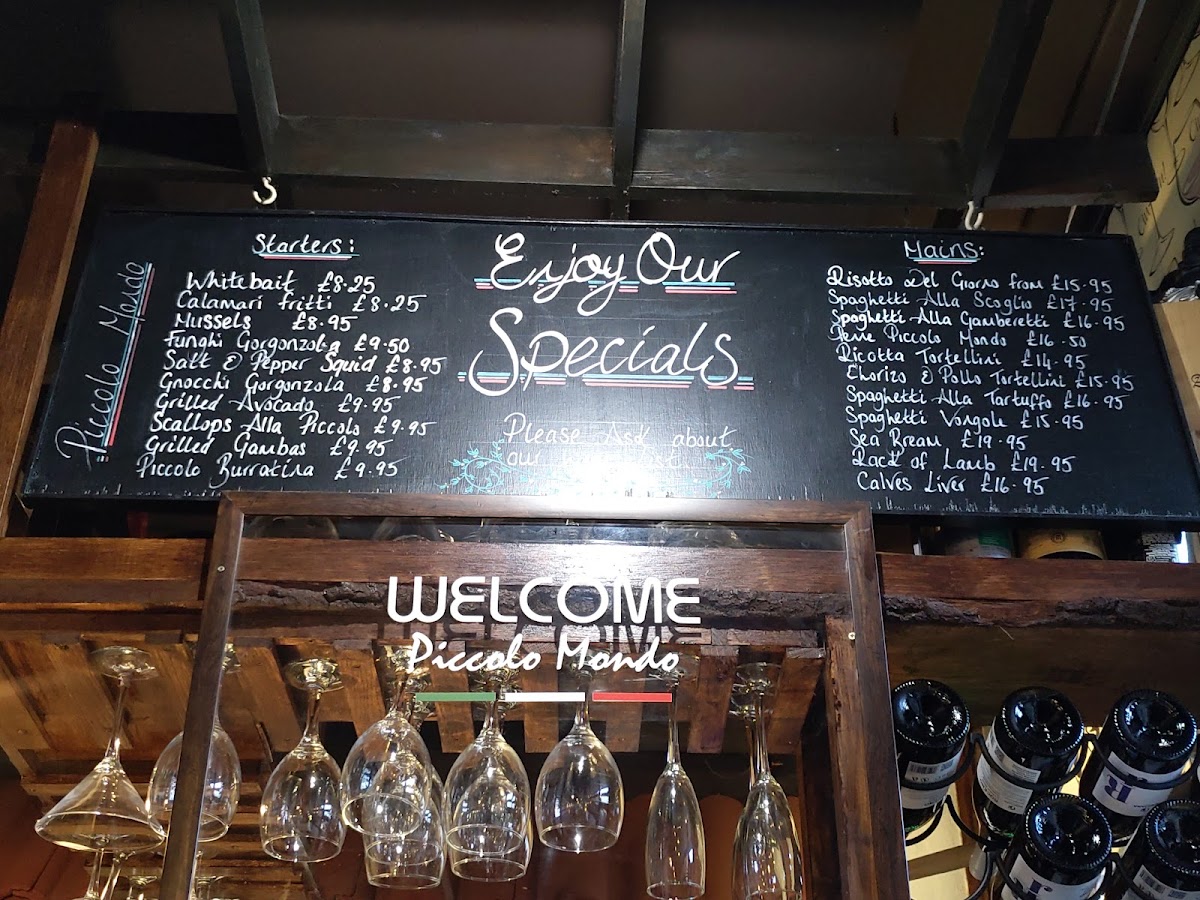 Piccolo Mondo
Starters:
Whitebait £8.25
Calamari fritti £8.25
Mussels £8.95
Funghi Gorgonzola £9.50
Salt & Pepper Squid £8.95
Gnocchi Gorgonzola £8.95
Grilled Avocado £9.95
Scallops Alla Piccolo £9.95
Grilled Gambas £9.95
Piccolo Burratina £9.95
Enjoy Our
Specials
Please Ask about
our
Mains:
Risotto Del Giorno from £15.95
Spaghetti Alla Scoglio £17.95
Spaghetti Alla Gamberetti £16.95
Penne Piccolo Mondo £16.50
Ricotta Tortellini £14.95
Chorizo & Pollo Tortellini £15.95
Spaghetti Alla Tartuffo £16.95
Spaghetti Vongole £15.95
Sea Bream £19.95
Rack of Lamb £19.95
Calves Liver £16.95
WELCOME
Piccolo Mondo